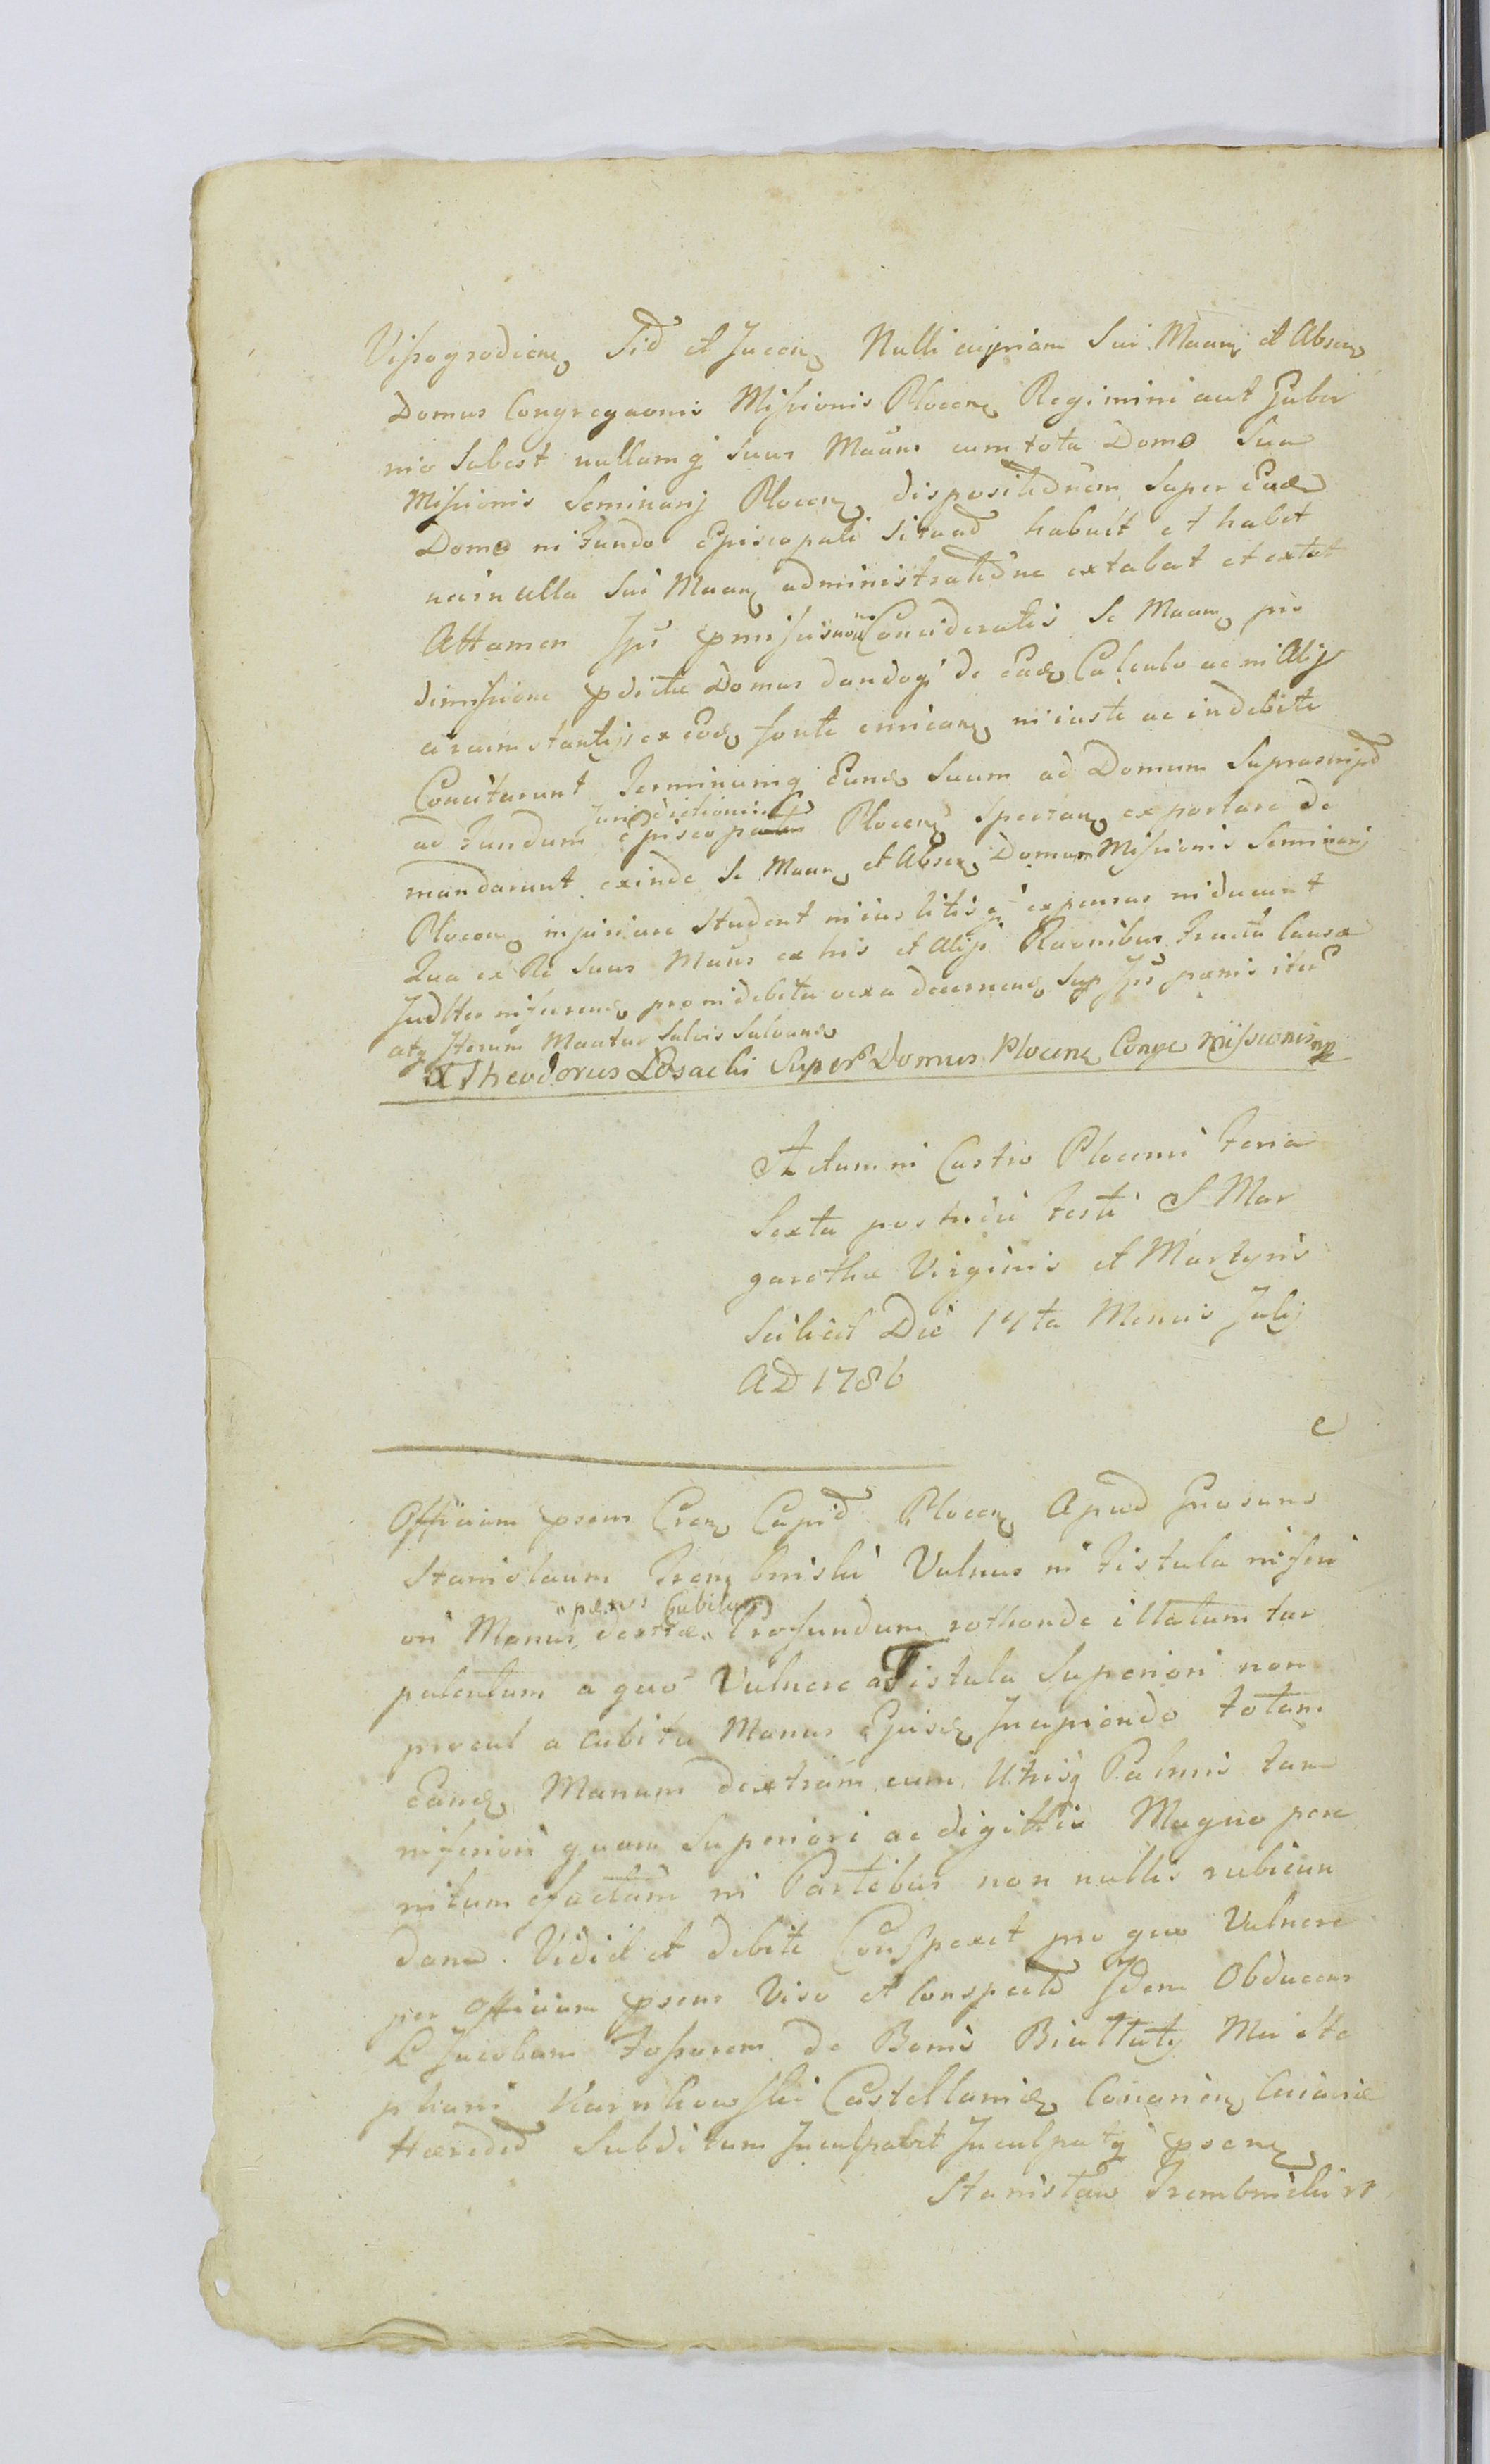 Vissogrodien Sid et Jacen Nulli cuipiam Sui Maan et Absen
Domus Congregaonis Missionis Plocen Regimini aut Guber
nio Subest nullamq suus Maans cum tota Domo Sua
Missionis Seminarij Plocen dispositiõnem Super Ead
Domo in Fundo Episcopali Situad habuit et habet
nec in ulla Sui Maan administratiõne extabat et extat
Attamen Ipi pmissis non Consideratis Se Maan pro
dimissione pdictæ Domus dandoq de Ead Calculo ac in Alijs
circumstantijs ex eod fonte emican iniuste ac indebite
Concitarunt Terminumq Eund Suum ad Domum Suprascript
Jurisdictionis
ad Fundum Episcopa Plocen Spectan exportare de
mandarunt exinde Se Maan et Absen Domum Missionis Seminarij
Plocen injuriare Student in ius litisq expensas inducunt
Qua ex Re Suus Maans ex his et Alijs Raonibus Tractu Causæ
Judtter inferend pro indebita vexa decernend Sup Ips pœnis iteru
atq Iterum Maatur Salvis Salvand
X Theodorus Osaehi Super Domus Plocen Congr Missionis mp
Actum in Castro Plocensi Feria
Sexta postridie Festi S Mar
garethæ Virginis et Martyris
Scilicet Die 14ta Mensis Julij
AD 1786
Officium psens Cren Capid Plocen Apud Gnosum
Stanislaum Trembinski Vulnus in Fistula inferi
penes Cubitum
ori Manus dextræ Profundum rothonde illatum tur
pulentum a quo Vulnere a Fistula Superiori non
procul a Cubitu Manus Ejusd Incipiendo totam
Eand Manum dextram cum Utrisq Palmis tam
inferiori quam Superiori ac digittis Magno pere
nitum efactam in Partibus non nullis rubicun
dam. Vidit et debite Conspexit pro quo Vulnere
per Officium psens Viso et Conspecto Idem Obducens
L Jacobum Fossorem de Bonis Biattuty
phani Karnkowski Castellanid Conarien Cuiaviæ
Hæredid Subditum Inculpavit Inculpatq psen
Stanisław Trembinski